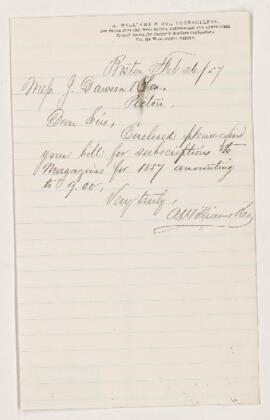 A. WILLIAMS & CO., BOOKSELLERS,
Boston Feb 26/57
Mess. J. Dawson & Co.
Pictou
Dear Sirs,
Enclosed please find
your bill for subscriptions to
Magazines for 1857 amounting
to 9.00.
Very truly,
A Williams & Co